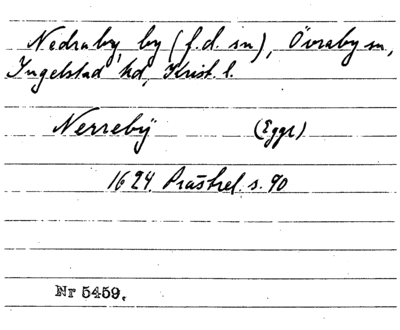 Nedraby, by (f.d. sn), Övraby sn,
Ingelstad hd, Krist. l.
Nerrebÿ (Eggr)
1624. Prästrel. s. 90
Nr 5459.